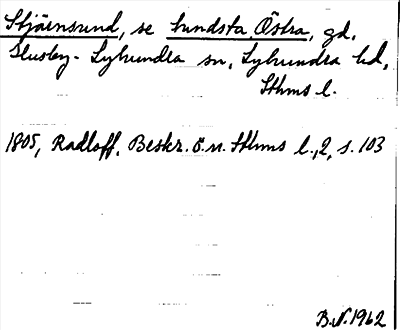 Stjärnsund, se Lundsta, Östra, gd,
Slusby-Lyhundra sn, Lyhundra hd,
Sthms l.
1805, Radloff, Beskr. ö. n. Sthms l., 2, s. 103
B.N. 1962